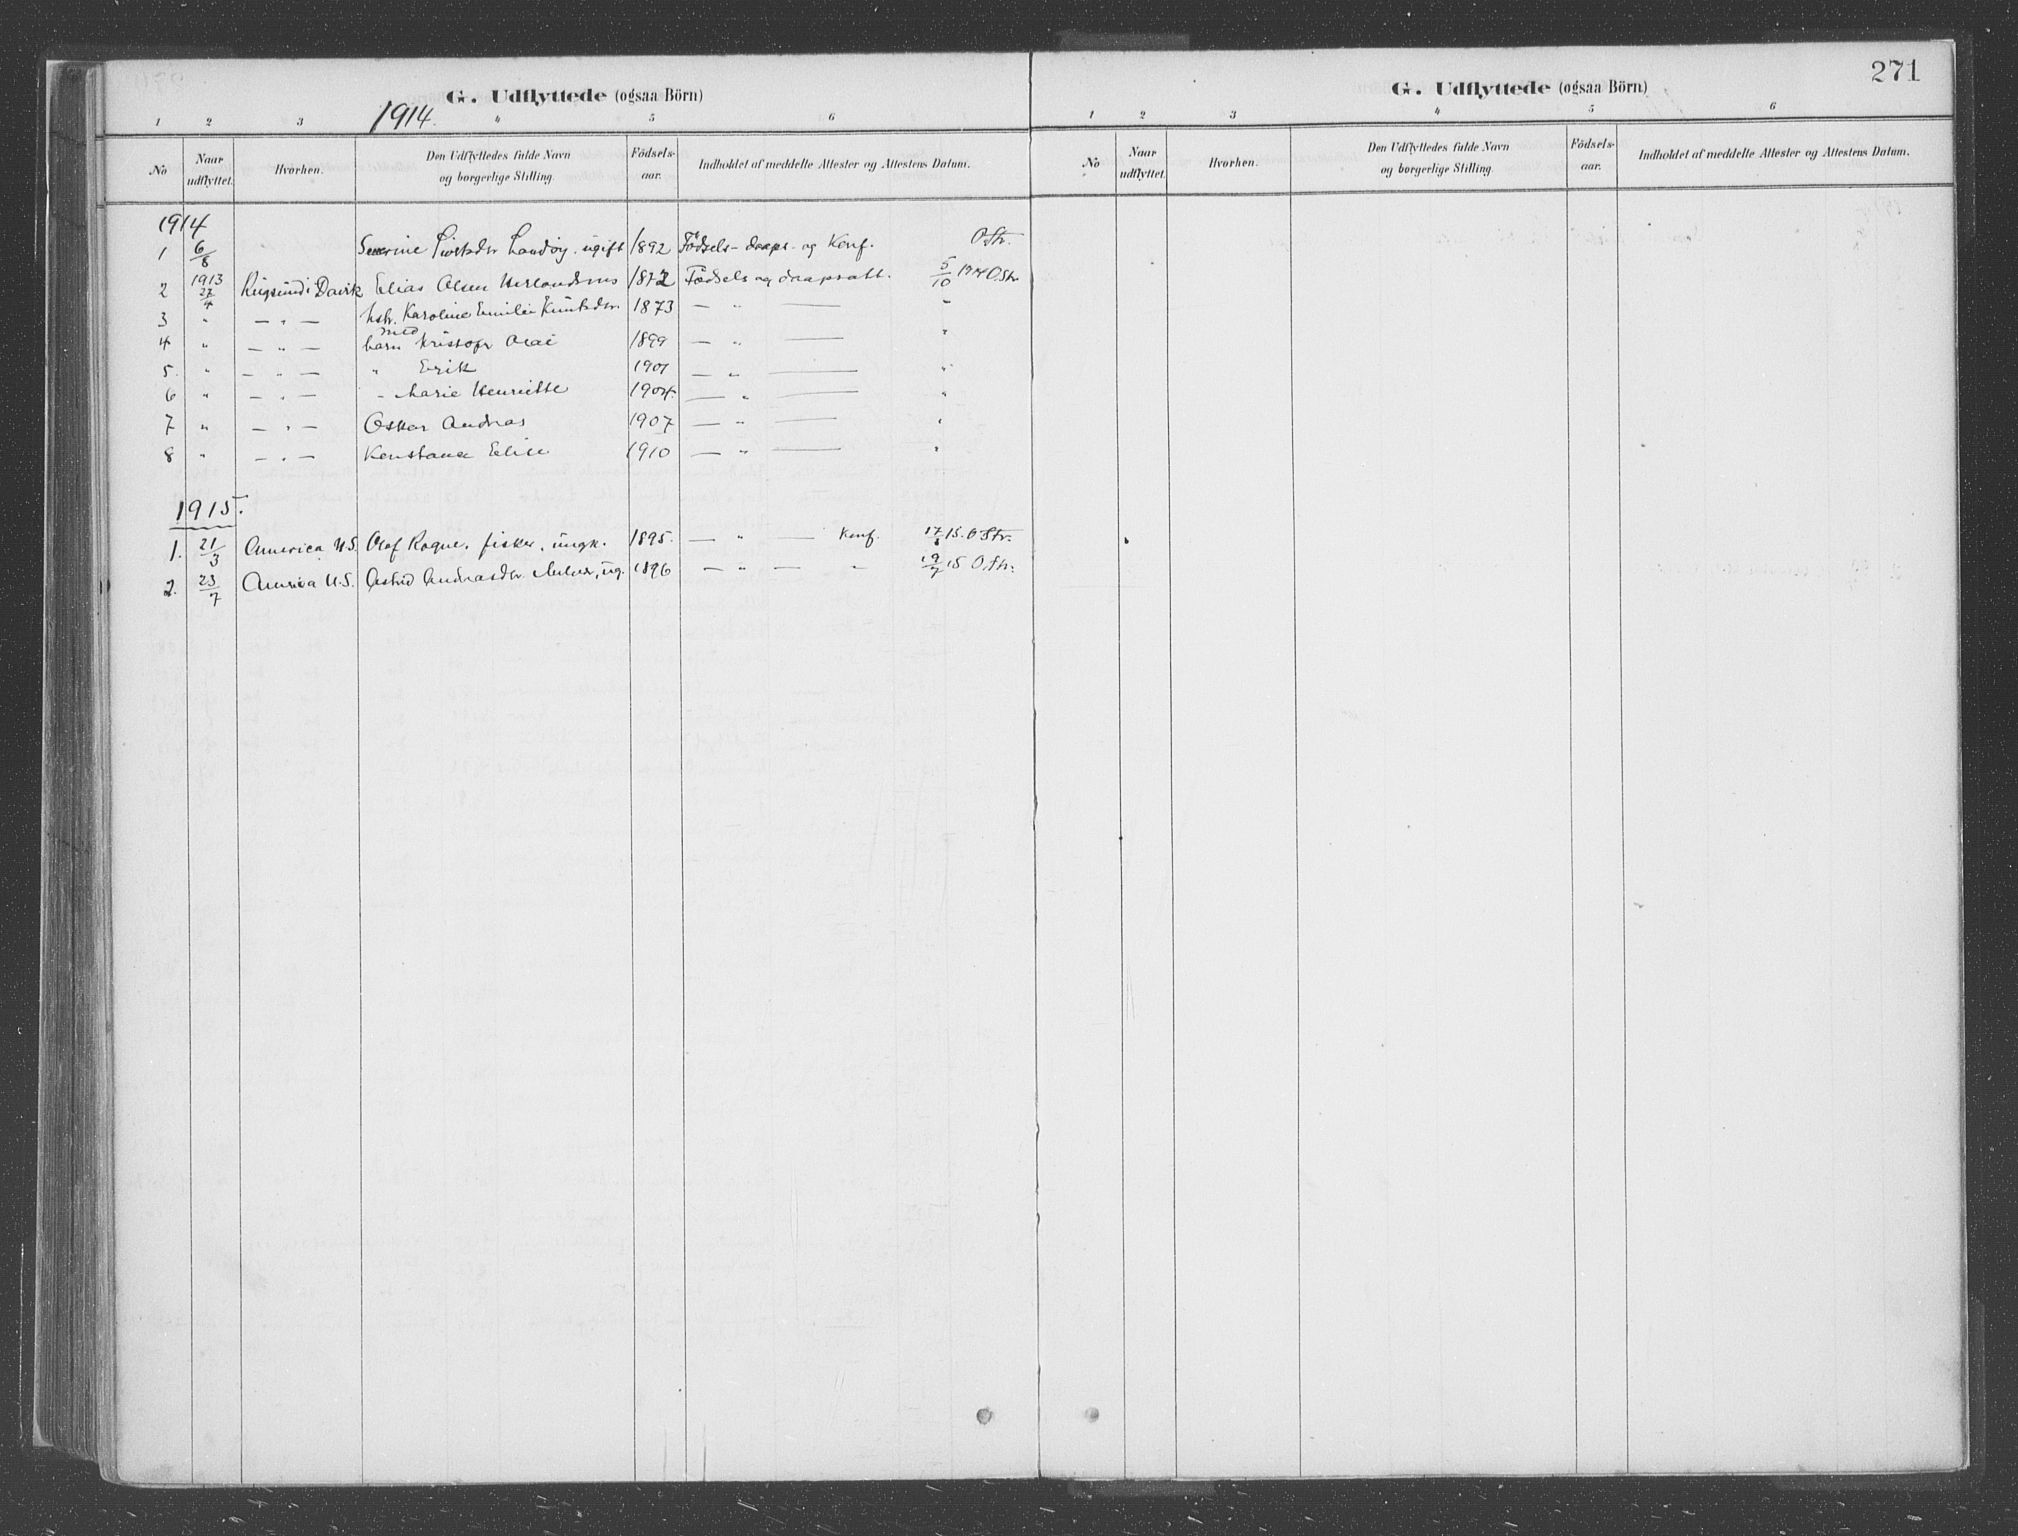 271
G. Udflyttede (ogsaa Börn)
1914.
1 2 3 4 5 6
No Naar udflyttet. Hvorhen. Den Udflyttedes fulde Navn og borgerlige Stilling. Födsels-aar. Indholdet af meddelte Attester og Attestens Datum.
1914
1 6/8 Severine Landöy. ugift 1892 Födsels- daaps- og Konf. O.Str.
2 1913 27/4 Rugsund i Davik Elias Olsen 1872 Födsels og daapsatt. 5/10 1914 O.Str.
3 " — " — hstr. Karoline Emilie Knutsdtr. 1873 — " — "
4 " — " — med barn Kristofr Olai 1899 — " — "
5. " — " — " Erik 1901 — " — "
6 " — " — " Marie Henriette 1904. — " — "
7 " — " — Oskar Andreas 1907 — " — "
8 " — " — Konstanse Elise 1910 — " — "
1915.
1. 21/3 America U.S. Olaf Rogne. fisker, ungk. 1895. — " — Konf. 17/6 15. O Str.
2. 23/7 America U.S. Astrid Andreasdtr. ug. 1896 — " — " 19/7 15 O.Str.
G. Udflyttede (ogsaa Börn)
1 2 3 4 5 6
No Naar udflyttet. Hvorhen. Den Udflyttedes fulde Navn og borgerlige Stilling. Födsels-aar. Indholdet af meddelte Attester og Attestens Datum.